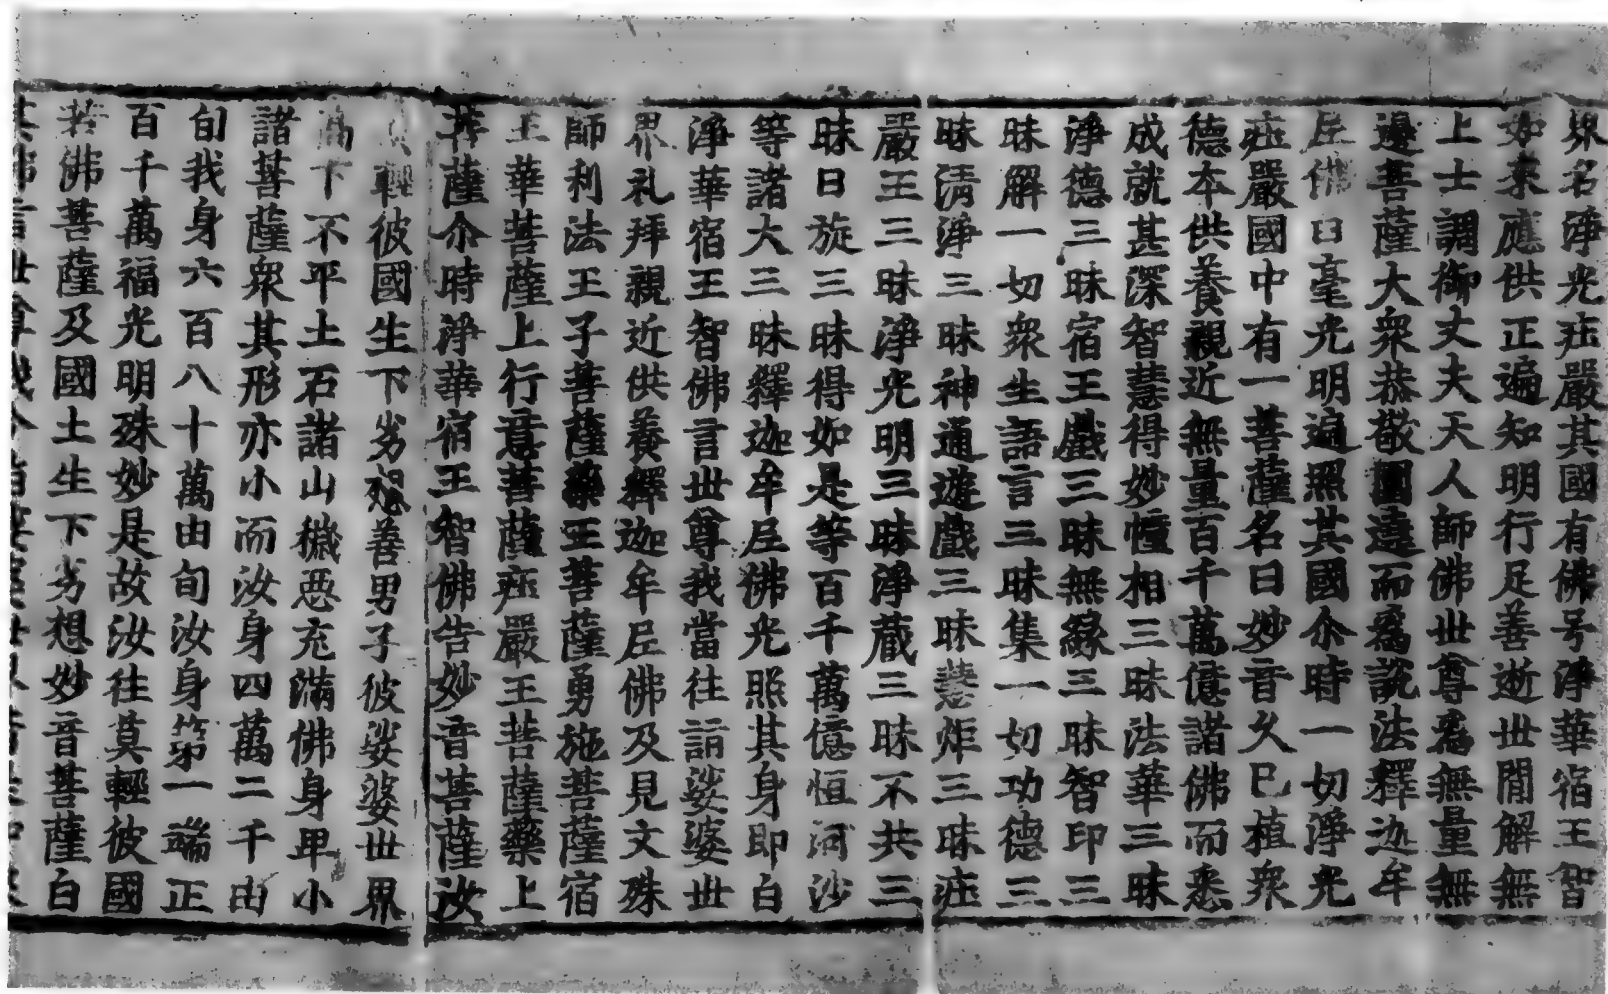 界名淨光庄嚴其國有佛号淨華宿王智
如来應供正遍知明行足善逝世閒解無
上士調御丈夫天人師佛世尊爲無量無
邊菩薩大衆恭敬圍遶而爲説法釋迦牟
𡰱佛白毫光明遍照其國尒時一切淨光
庄嚴國中有一菩薩名曰妙音久已植衆
德夲供養親近無量百千萬億諸佛而悉
成就甚深智慧得妙幢相三昧法華三昧
淨德三昧宿王戲三昧無緣三昧智印三
昧解一切衆生語言三昧集一切功德三
昧清淨三昧神通遊戲三昧慧炬三昧庄
嚴王三昧淨光明三昧淨藏三昧不共三
昧日旋三昧得如是等百千萬億恒河沙
等諸大三昧釋迦牟𡰱佛光照其身即白
淨華宿王智佛言世尊我當往詣娑婆世
界礼拜親近供養釋迦牟𡰱佛及見文殊
師利法王子菩薩藥王菩薩勇施菩薩宿
王華菩薩上行意菩薩庄嚴王菩薩藥上
菩薩尒時淨華宿王智佛告妙音菩薩汝
輕彼國生下劣想善男子彼娑婆世界
高下不平土石諸山穢惡充滿佛身卑小
諸菩薩衆其形亦小而汝身四萬二千由
旬我身六百八十萬由旬汝身第一端正
百千萬福光明殊妙是故汝往莫輕彼國
若佛菩薩及國土生下劣想妙音菩薩白